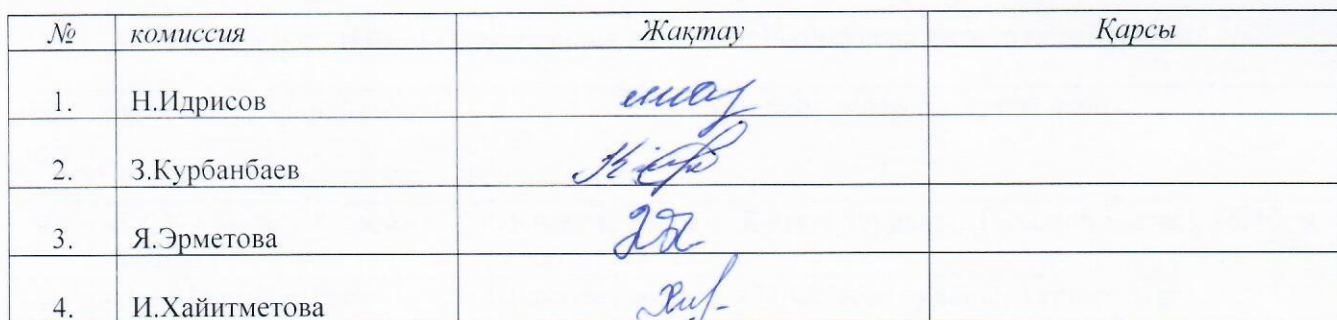 № комиссия Жақтау Қарсы
1. Н.Идрисов
2. З.Курбанбаев
3. Я.Эрметова
4. И.Хайитметова